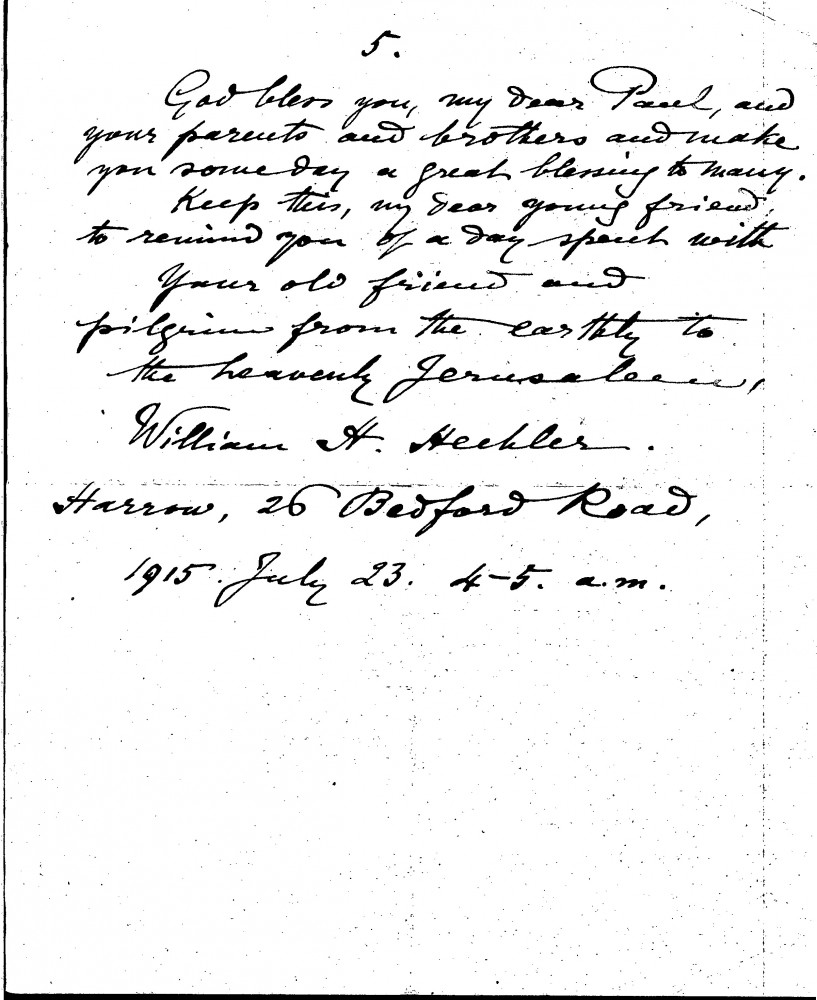 5.
God bless you, my dear Paul, and
your parents and brothers and make
you some day a great blessing to many.
Keep this, my dear young friend,
to remind you of a day spent with
Your old friend and
pilgrim from the earthly to
the heavenly Jerusalem,
William H. Hechler.
Harrow, 26 Bedford Road,
1915. July 23. 4-5. a.m.